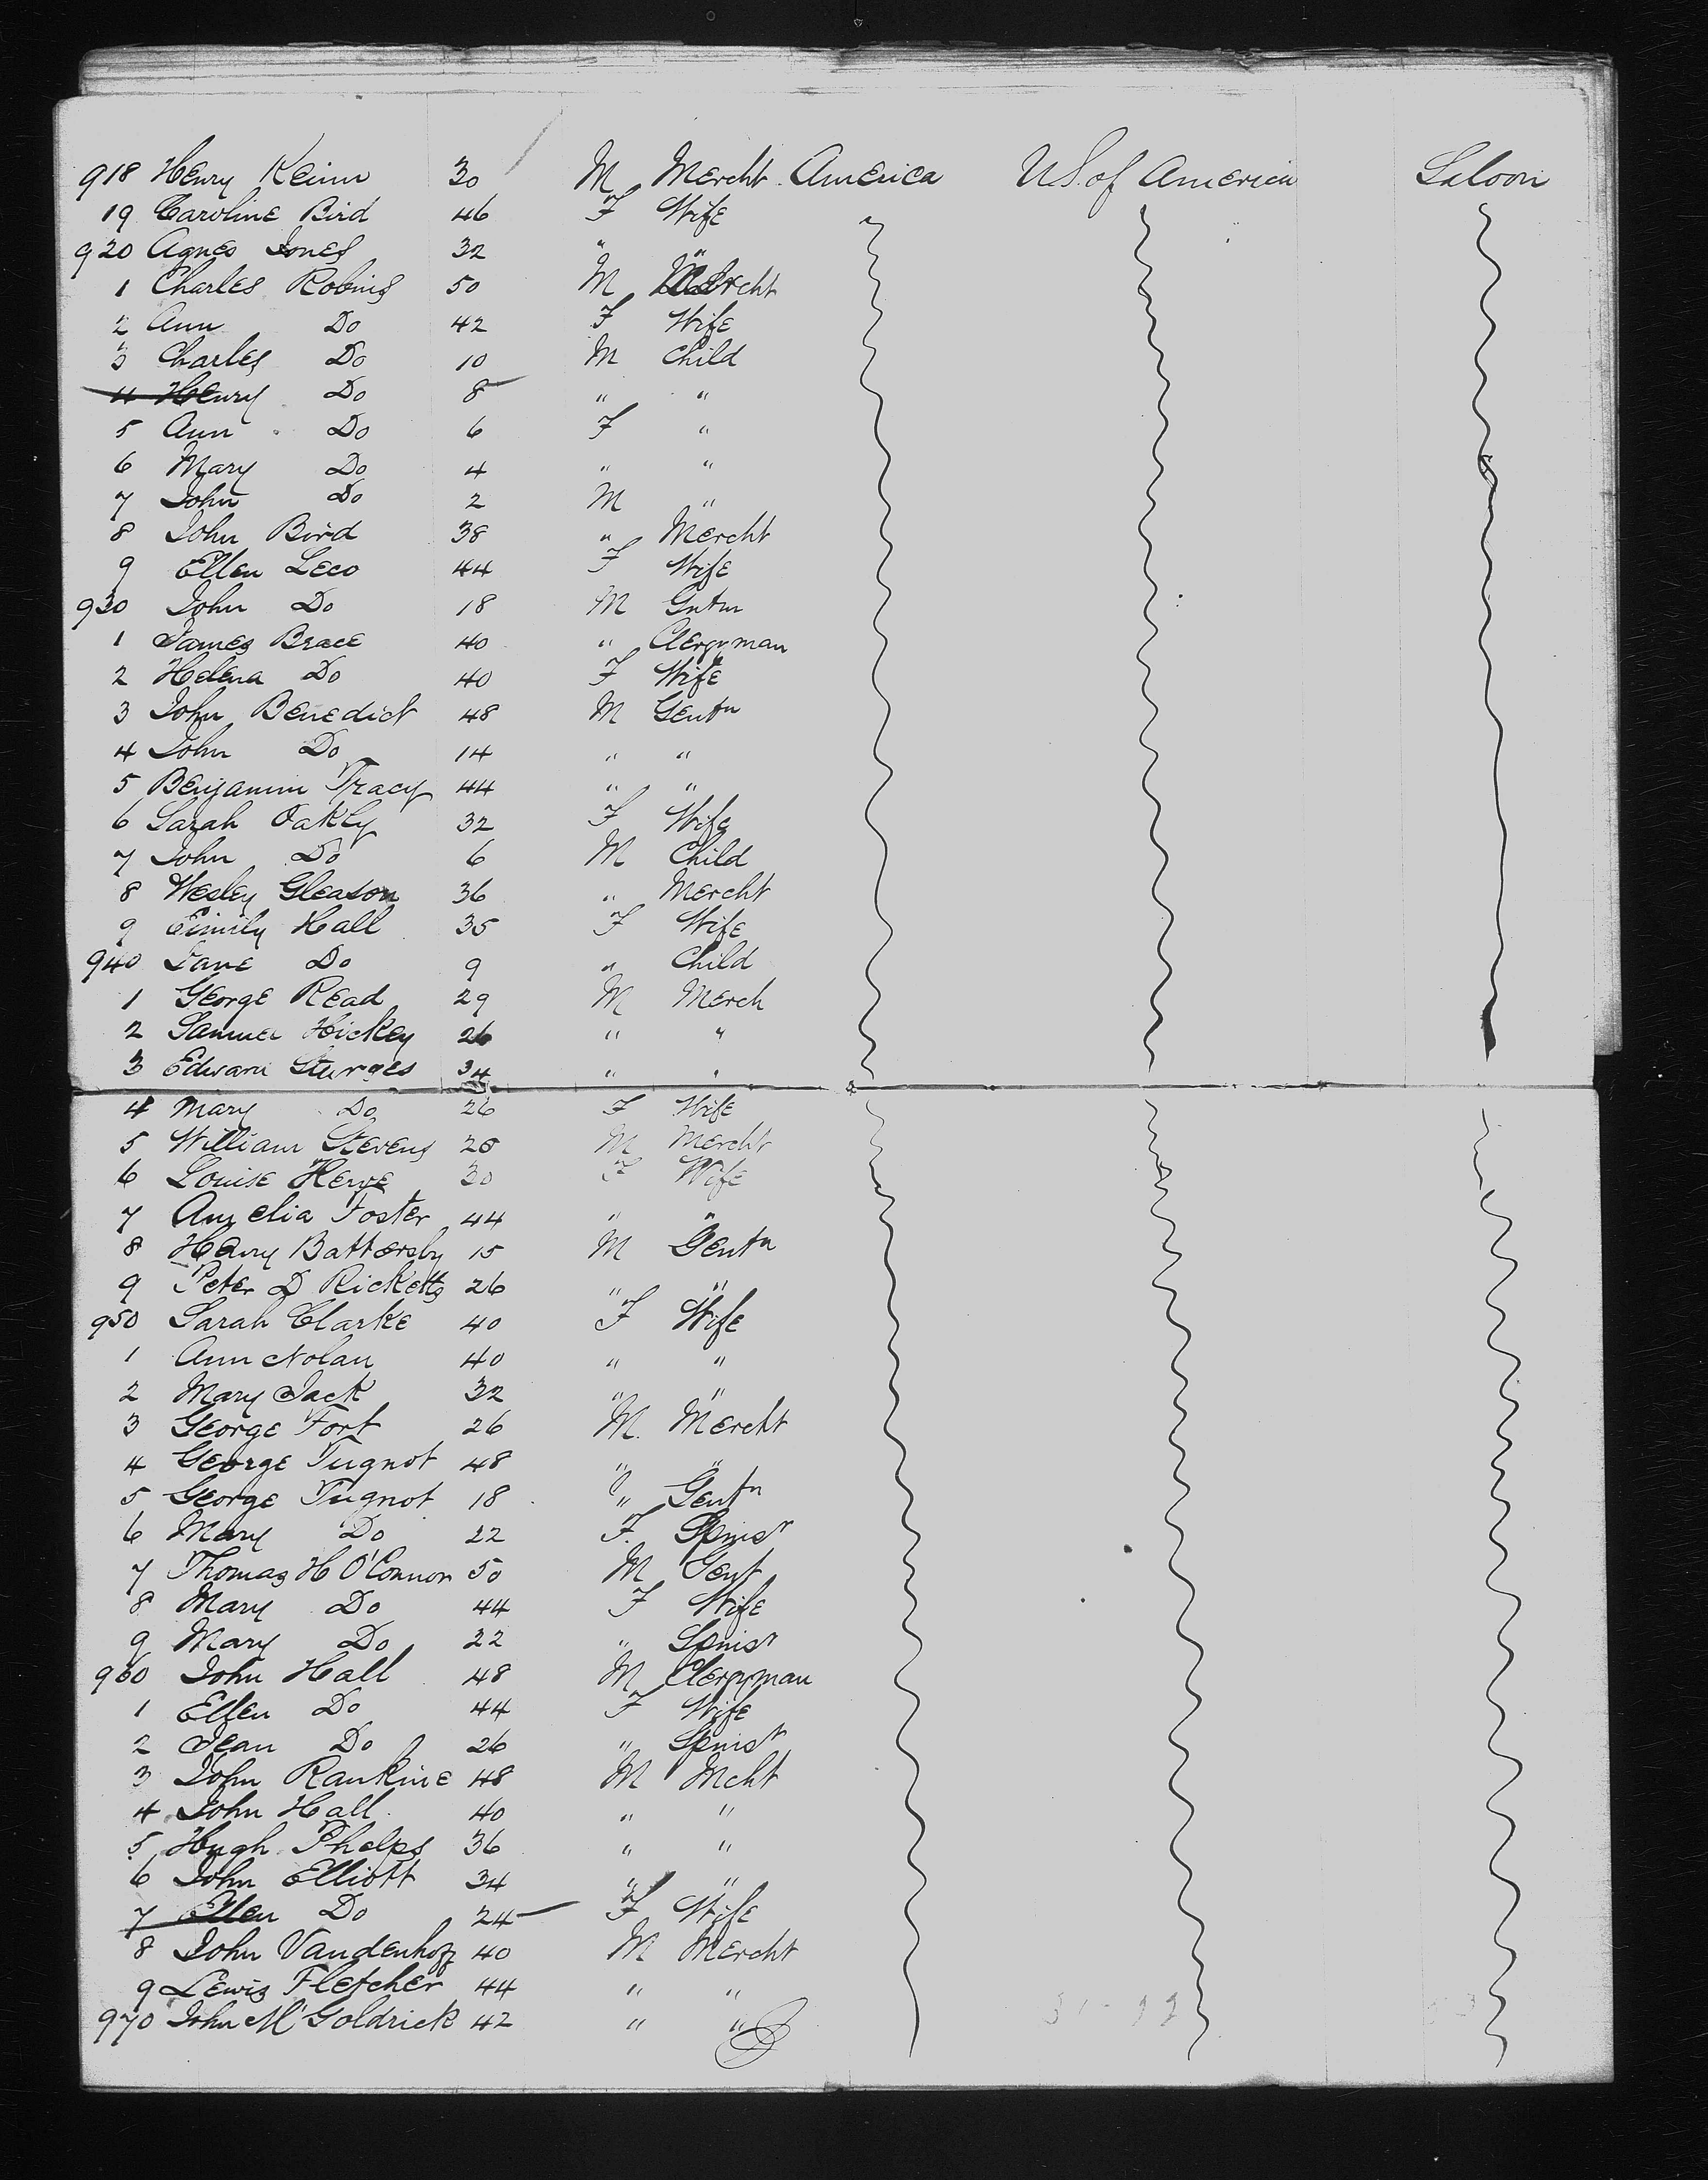 918 Henry Keinn 30 M Mercht America U.S. of America Saloon
19 Caroline Bird 46 F Wife
920 Agnes Jones 32 " "
1 Charles Robins 50 M Mercht
2 Ann Do 42 F Wife
3 Charles Do 10 M Child
4 Henry Do 8 " "
5 Ann Do 6 F "
6 Mary Do 4 " "
7 John Do 2 M "
8 John Bird 38 " Mercht
9 Ellen Leco 44 F Wife
930 John Do 18 M Gntm
1 James Brace 40 " Clergyman
2 Helena Do 40 F Wife
3 John Benedict 48 M Gentn
4 John Do 14 " "
5 Benjamin Tracy 44 " "
6 Sarah Oakly 32 F Wife
7 John Do 6 M Child
8 Wesley Gleason 36 " Mercht
9 Emily Hall 35 F Wife
940 Jane Do 9 " Child
1 George Read 29 M Merch
2 Samuel Hickey 26 " "
3 Edward Sturges 34 " "
4 Mary Do 26 F Wife
5 William Stevens 28 M Mercht
6 Louise Herve 30 F Wife
7 Amelia Foster 44 " "
8 Henry Battersby 15 M Gentn
9 Peter D Ricketts 26 " "
950 Sarah Clarke 40 F Wife
1 Ann Nolan 40 " "
2 Mary Jack 32 " "
3 George Fort 26 M. Mercht
4 George Tugnot 48 " "
5 George Tugnot 18 " Gentn
6 Mary Do 22 F. Spinsr
7 Thomas H O'Connor 50 M Gent
8 Mary Do 44 F Wife
9 Mary Do 22 " Spinsr
960 John Hall 48 M Clergyman
1 Ellen Do 44 F Wife
2 Jean Do 26 " Spinsr
3 John Rankine 48 M Mcht
4 John Hall 40 " "
5 Hugh Phelps 36 " "
6 John Elliott 34 " "
7 Ellen Do 24 F Wife
8 John Vandenhoff 40 M Mercht
9 Lewis Fletcher 44 " "
970 John McGoldrick 42 " "